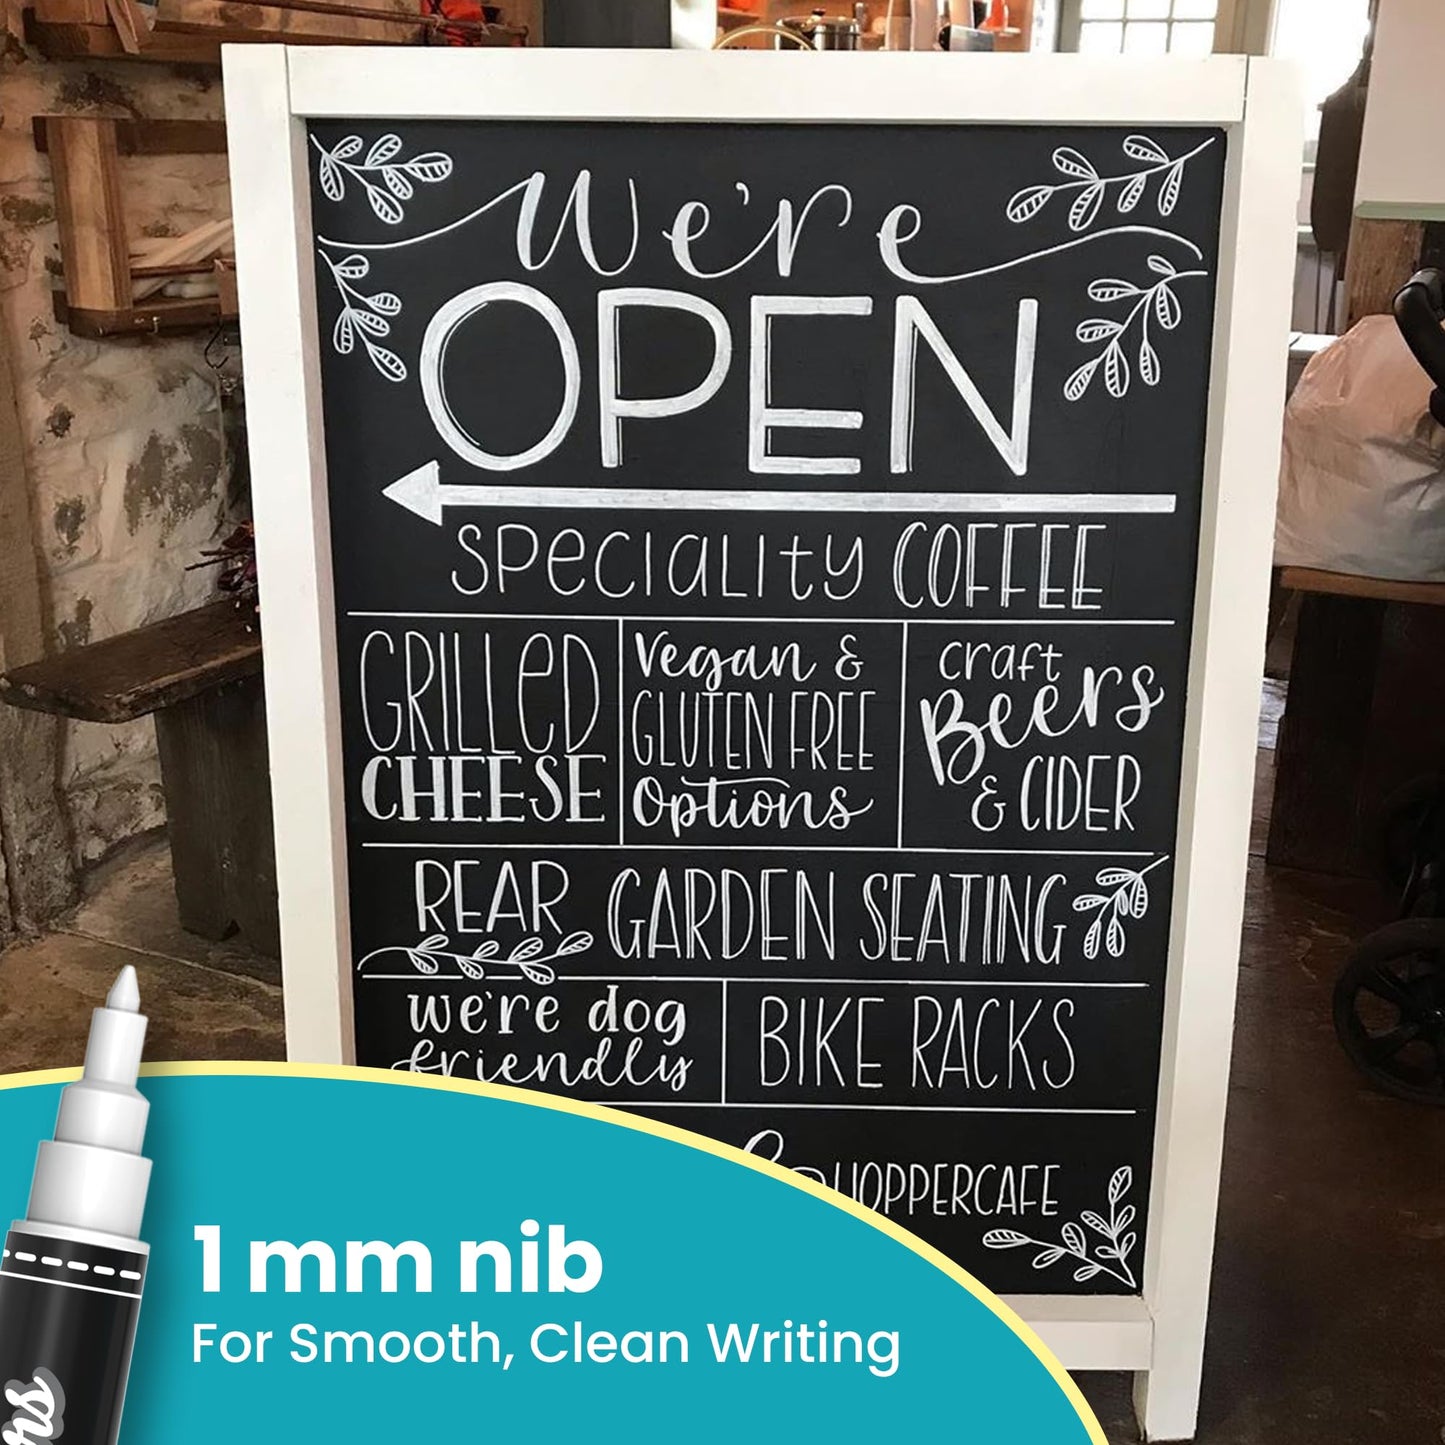 We're
OPEN
SPECIALITY COFFEE
GRILLED
CHEESE
Vegan &
GLUTEN FREE
Options
craft
Beers
& CIDER
REAR GARDEN SEATING
we're dog
friendly
BIKE RACKS
HOPPERCAFE
1 mm nib
For Smooth, Clean Writing